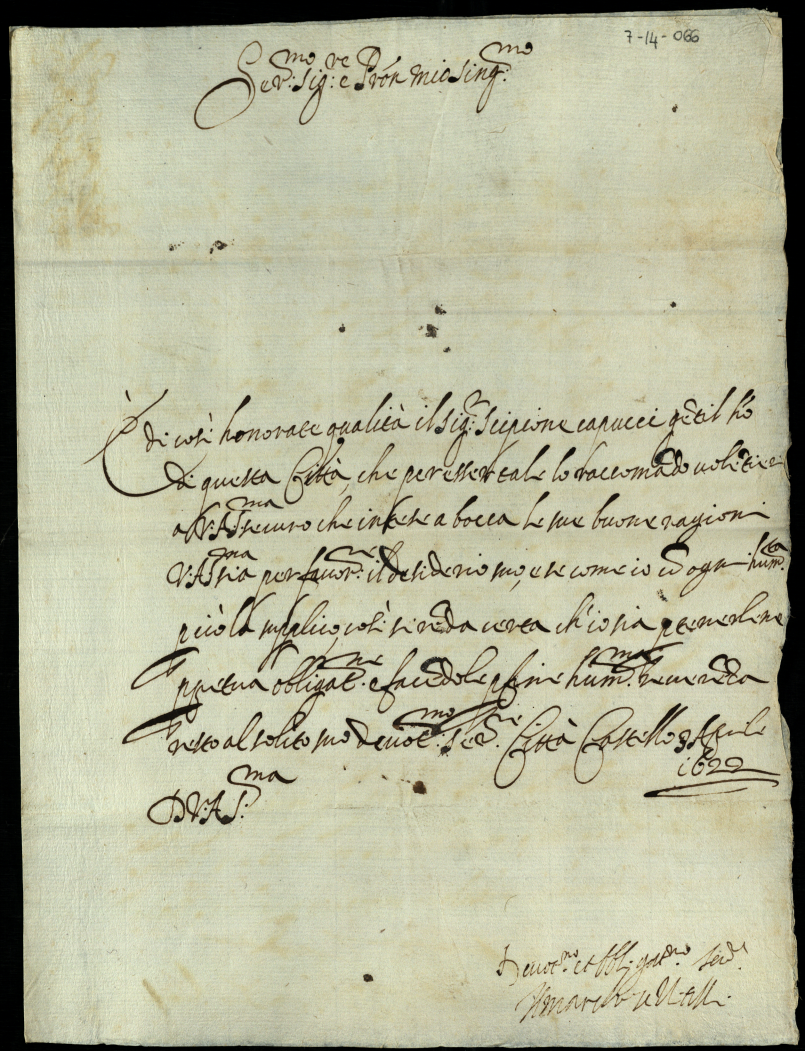 7-14-066
Ser.mo Sig.re e Pron mio sing.mo
È di così honorate qualità il Sig.r Scipione Capucci gẽtil hõ
di questa Città, che per esser tale lo raccomãdo volẽtieri
a V. A. S.ma securo che intese a bocca le sue buone ragioni
V. A. S.ma sia per favor.ne il desiderio suo, e se come io cõ ogni hum.ta
più la supplico, così si rẽda certa ch'io sia p tenerlene
ppetua obligat.ne e facẽdole p fine hum.ma reverẽtia
resto al solito suo devot.mo ser.re Città Castello 9 Aprile
1622
D V. A. S.ma
Devot.mo et obligat.mo ser.